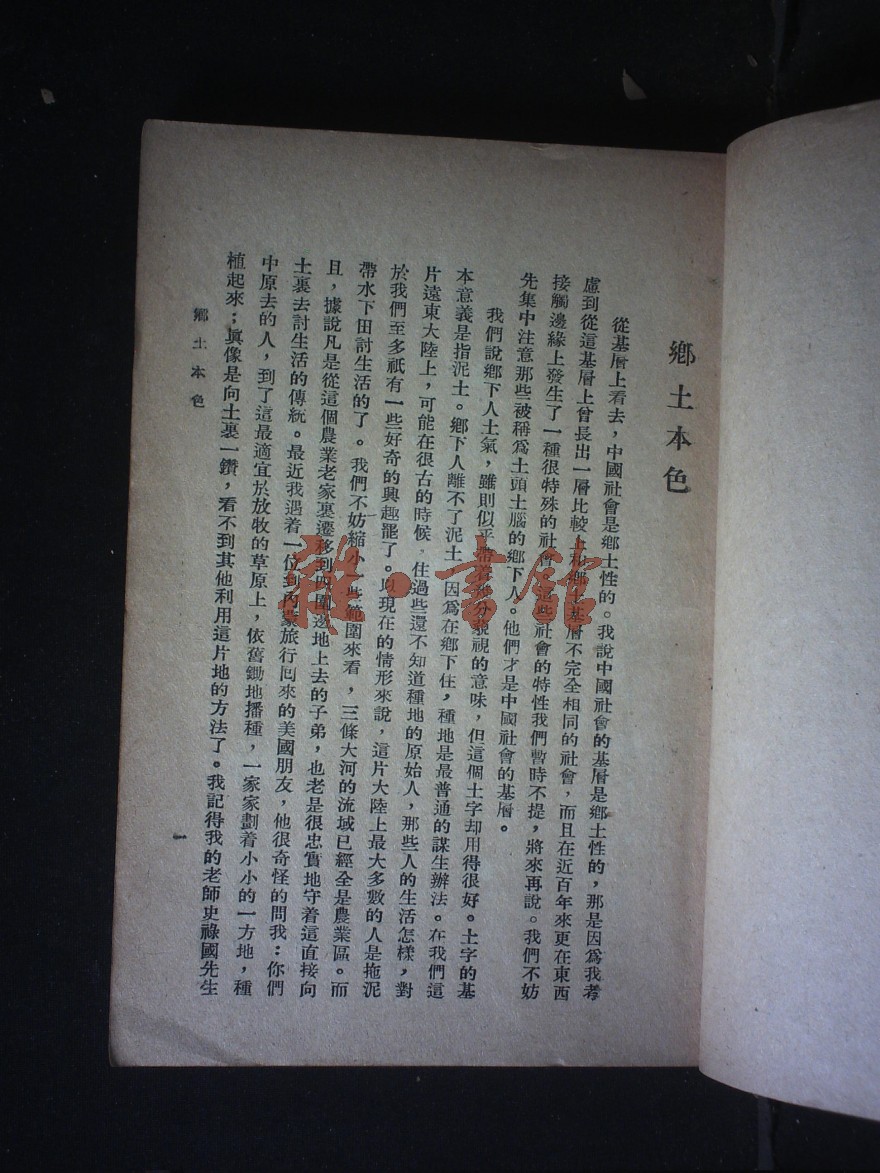 鄉土本色
從基層上看去，中國社會是鄉土性的。我說中國社會的基層是鄉土性的，那是因爲我考
慮到從這基層上曾長出一層比較上和鄉土基層不完全相同的社會，而且在近百年來更在東西
接觸邊緣上發生了一種很特殊的社會。這些社會的特性我們暫時不提，將來再說。我們不妨
先集中注意那些被稱爲土頭土腦的鄉下人。他們才是中國社會的基層。
我們說鄉下人土氣，雖則似乎帶着幾分藐視的意味，但這個土字却用得很好。土字的基
本意義是指泥土。鄉下人離不了泥土，因爲在鄉下住，種地是最普通的謀生辦法。在我們這
片遠東大陸上，可能在很古的時候，住過些還不知道種地的原始人，那些人的生活怎樣，對
於我們至多祇有一些好奇的興趣罷了。以現在的情形來說，這片大陸上最大多數的人是拖泥
帶水下田討生活的了。我們不妨縮小一些範圍來看，三條大河的流域已經全是農業區。而
且，據說凡是從這個農業老家裏遷移到四圍邊地上去的子弟，也老是很忠實地守着這直接向
土裏去討生活的傳統。最近我遇着一位到內蒙旅行回來的美國朋友，他很奇怪的問我：你們
中原去的人，到了這最適宜於放牧的草原上，依舊鋤地播種，一家家劃着小小的一方地，種
植起來；眞像是向土裏一鑽，看不到其他利用這片地的方法了。我記得我的老師史祿國先生
鄉土本色
一
雜·書館